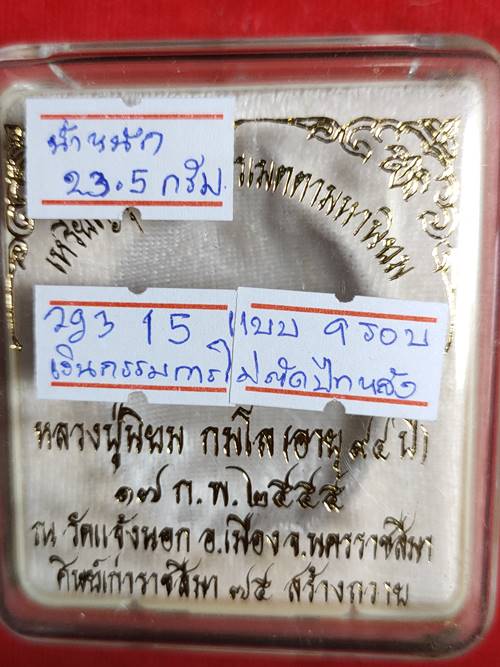 น้ำหนัก
23.5 กรัม.
เหรียญ เมตตามหานิยม
15 แบบ 9 รอบ
เงินกรรมการไม่ตัดปีกหลัง
หลวงปู่นิยม กมโล (อายุ ๙๔ ปี)
๑๗ ก.พ. ๒๕๕๕
ณ วัดแจ้งนอก อ.เมือง จ.นครราชสีมา
ศิษย์เก่าราชสีมา ๗๕ สร้างถวาย